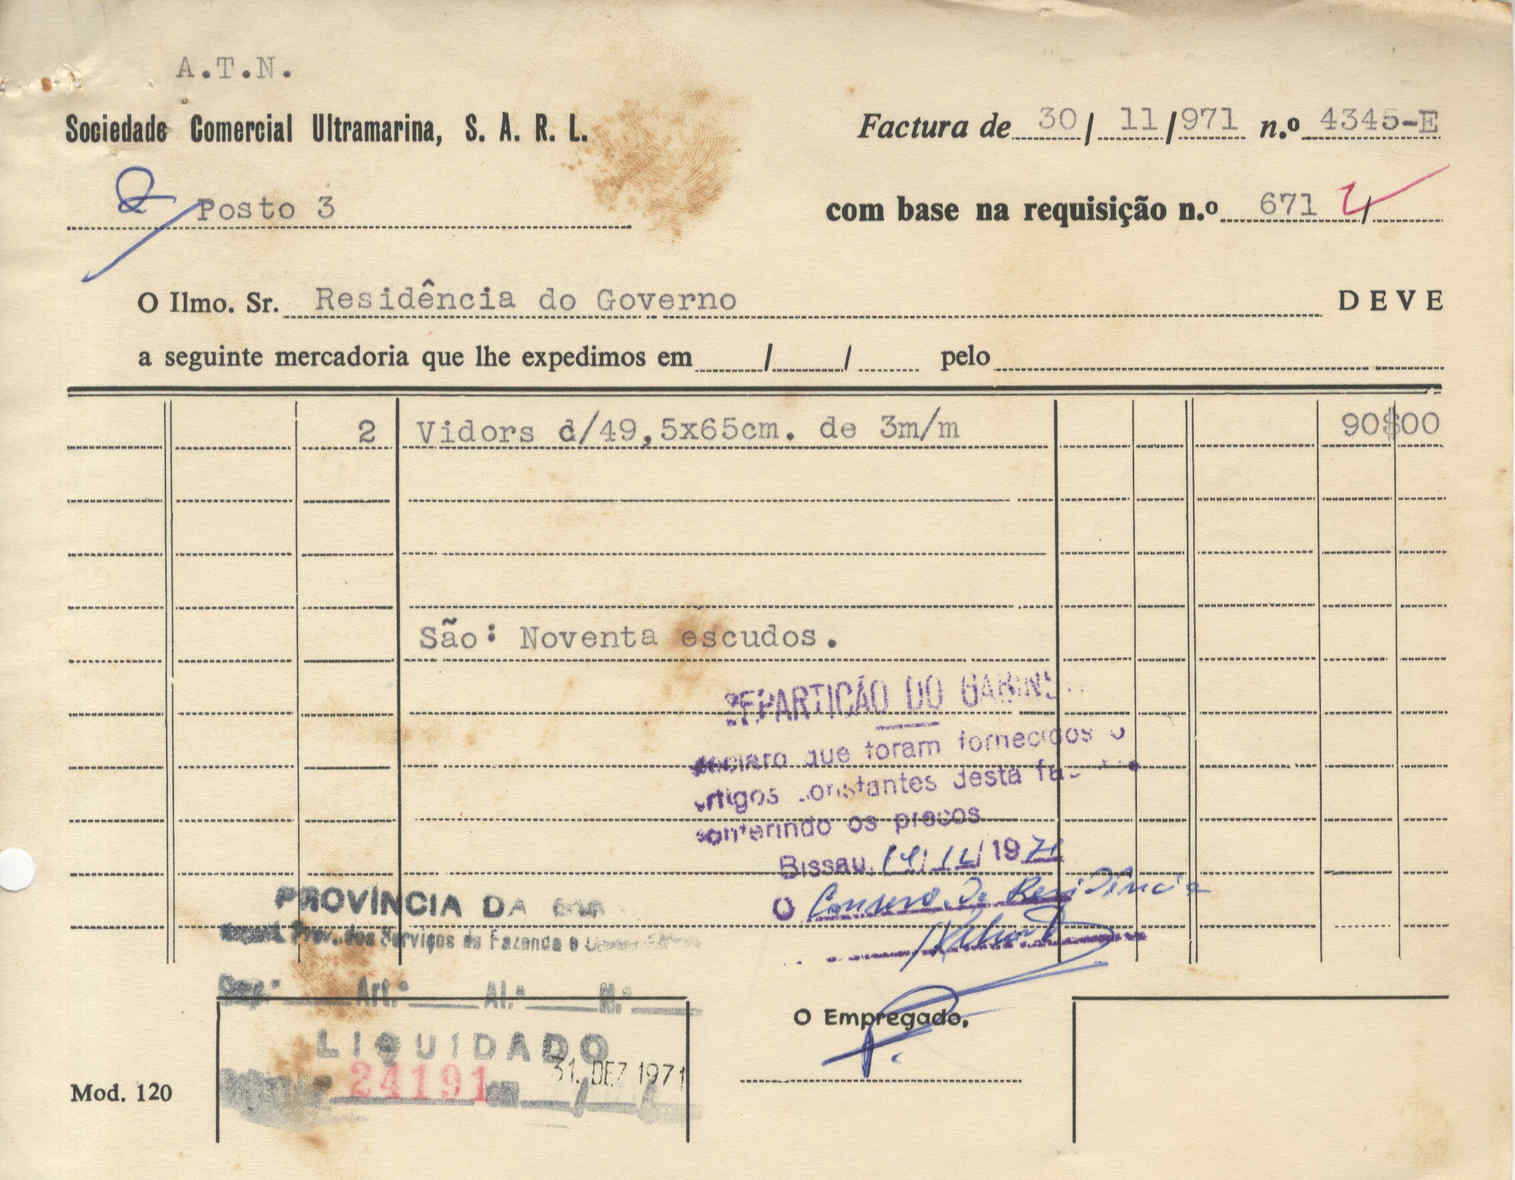 A.T.N.
Sociedade Comercial Ultramarina, S. A. R. L.
Factura de 30/ 11/971 n.º 4345-E
Posto 3
com base na requisição n.º 671 /
O Ilmo. Sr. Residência do Governo DEVE
a seguinte mercadoria que lhe expedimos em / / pelo
2 Vidors d/49,5x65cm. de 3m/m 90$00
São: Noventa escudos.
REPARTIÇÃO DO
declaro que foram fornecidos o
artigos constantes desta
conferindo os preços
Bissau, 14/12/1971
O Conserv. da Residência
PROVÍNCIA DA
Prov. dos Serviços de Fazenda e
Cap.º Art.º Al.ª N.º
LIQUIDADO
24191 em 31. DEZ 1971
O Empregado,
Mod. 120